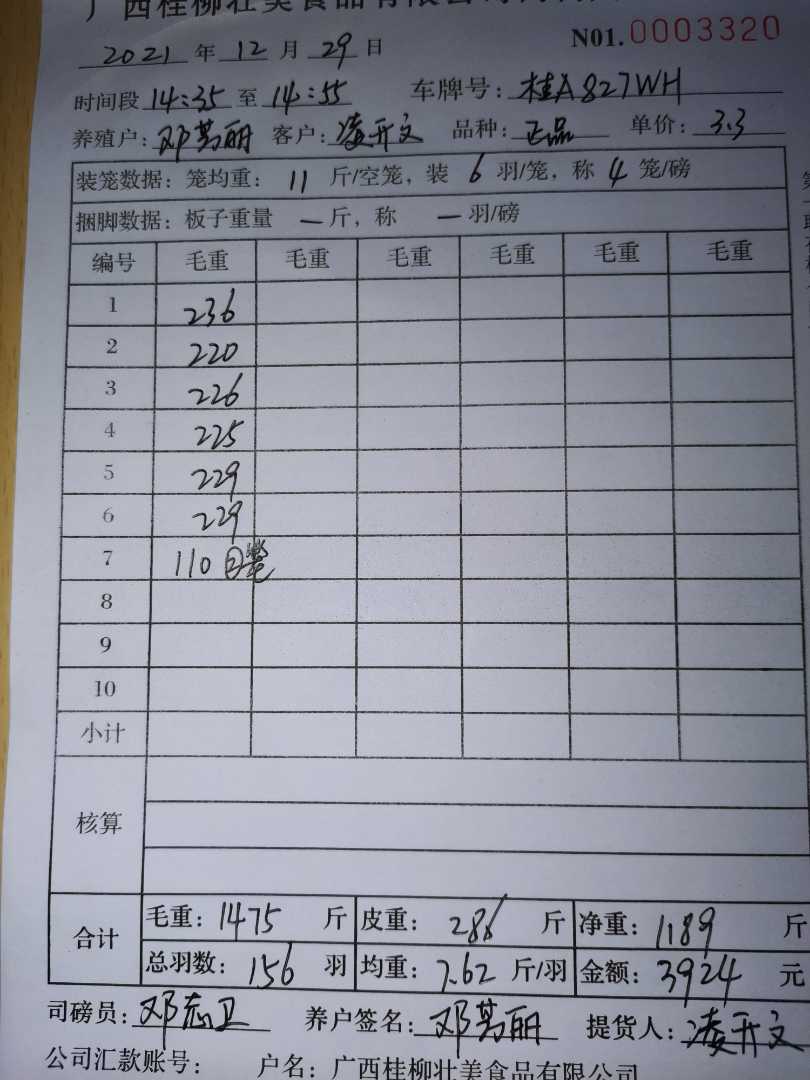 广西桂柳壮美食品有限公司
2021 年 12 月 29 日 N01. 0003320
时间段 14:35 至 14:55 车牌号: 桂A827WH
养殖户: 邓莴丽 客户: 凌开文 品种: 正品 单价: 3.3
装笼数据: 笼均重: 11 斤/空笼, 装 6 羽/笼, 称 4 笼/磅
捆脚数据: 板子重量 — 斤, 称 — 羽/磅
编号 毛重 毛重 毛重 毛重 毛重 毛重
1 236
2 220
3 226
4 225
5 229
6 229
7 110 ②笼
8
9
10
小计
核算
合计 毛重: 1475 斤 皮重: 286 斤 净重: 1189 斤
总羽数: 156 羽 均重: 7.62 斤/羽 金额: 3924 元
司磅员: 邓志卫 养户签名: 邓莴丽 提货人: 凌开文
公司汇款账号: 户名: 广西桂柳壮美食品有限公司